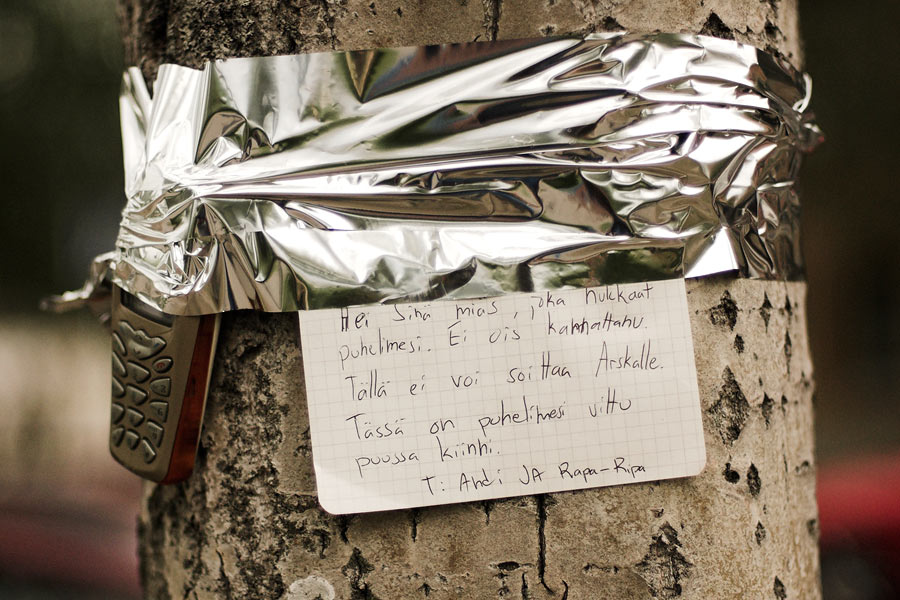 Hei sinä mias, joka hukkaat
puhelimesi. Ei ois kannattanu.
Tällä ei voi soittaa Arskalle.
Tässä on puhelimesi vittu
puussa kiinni.
T: Ahdi JA Rapa-Ripa